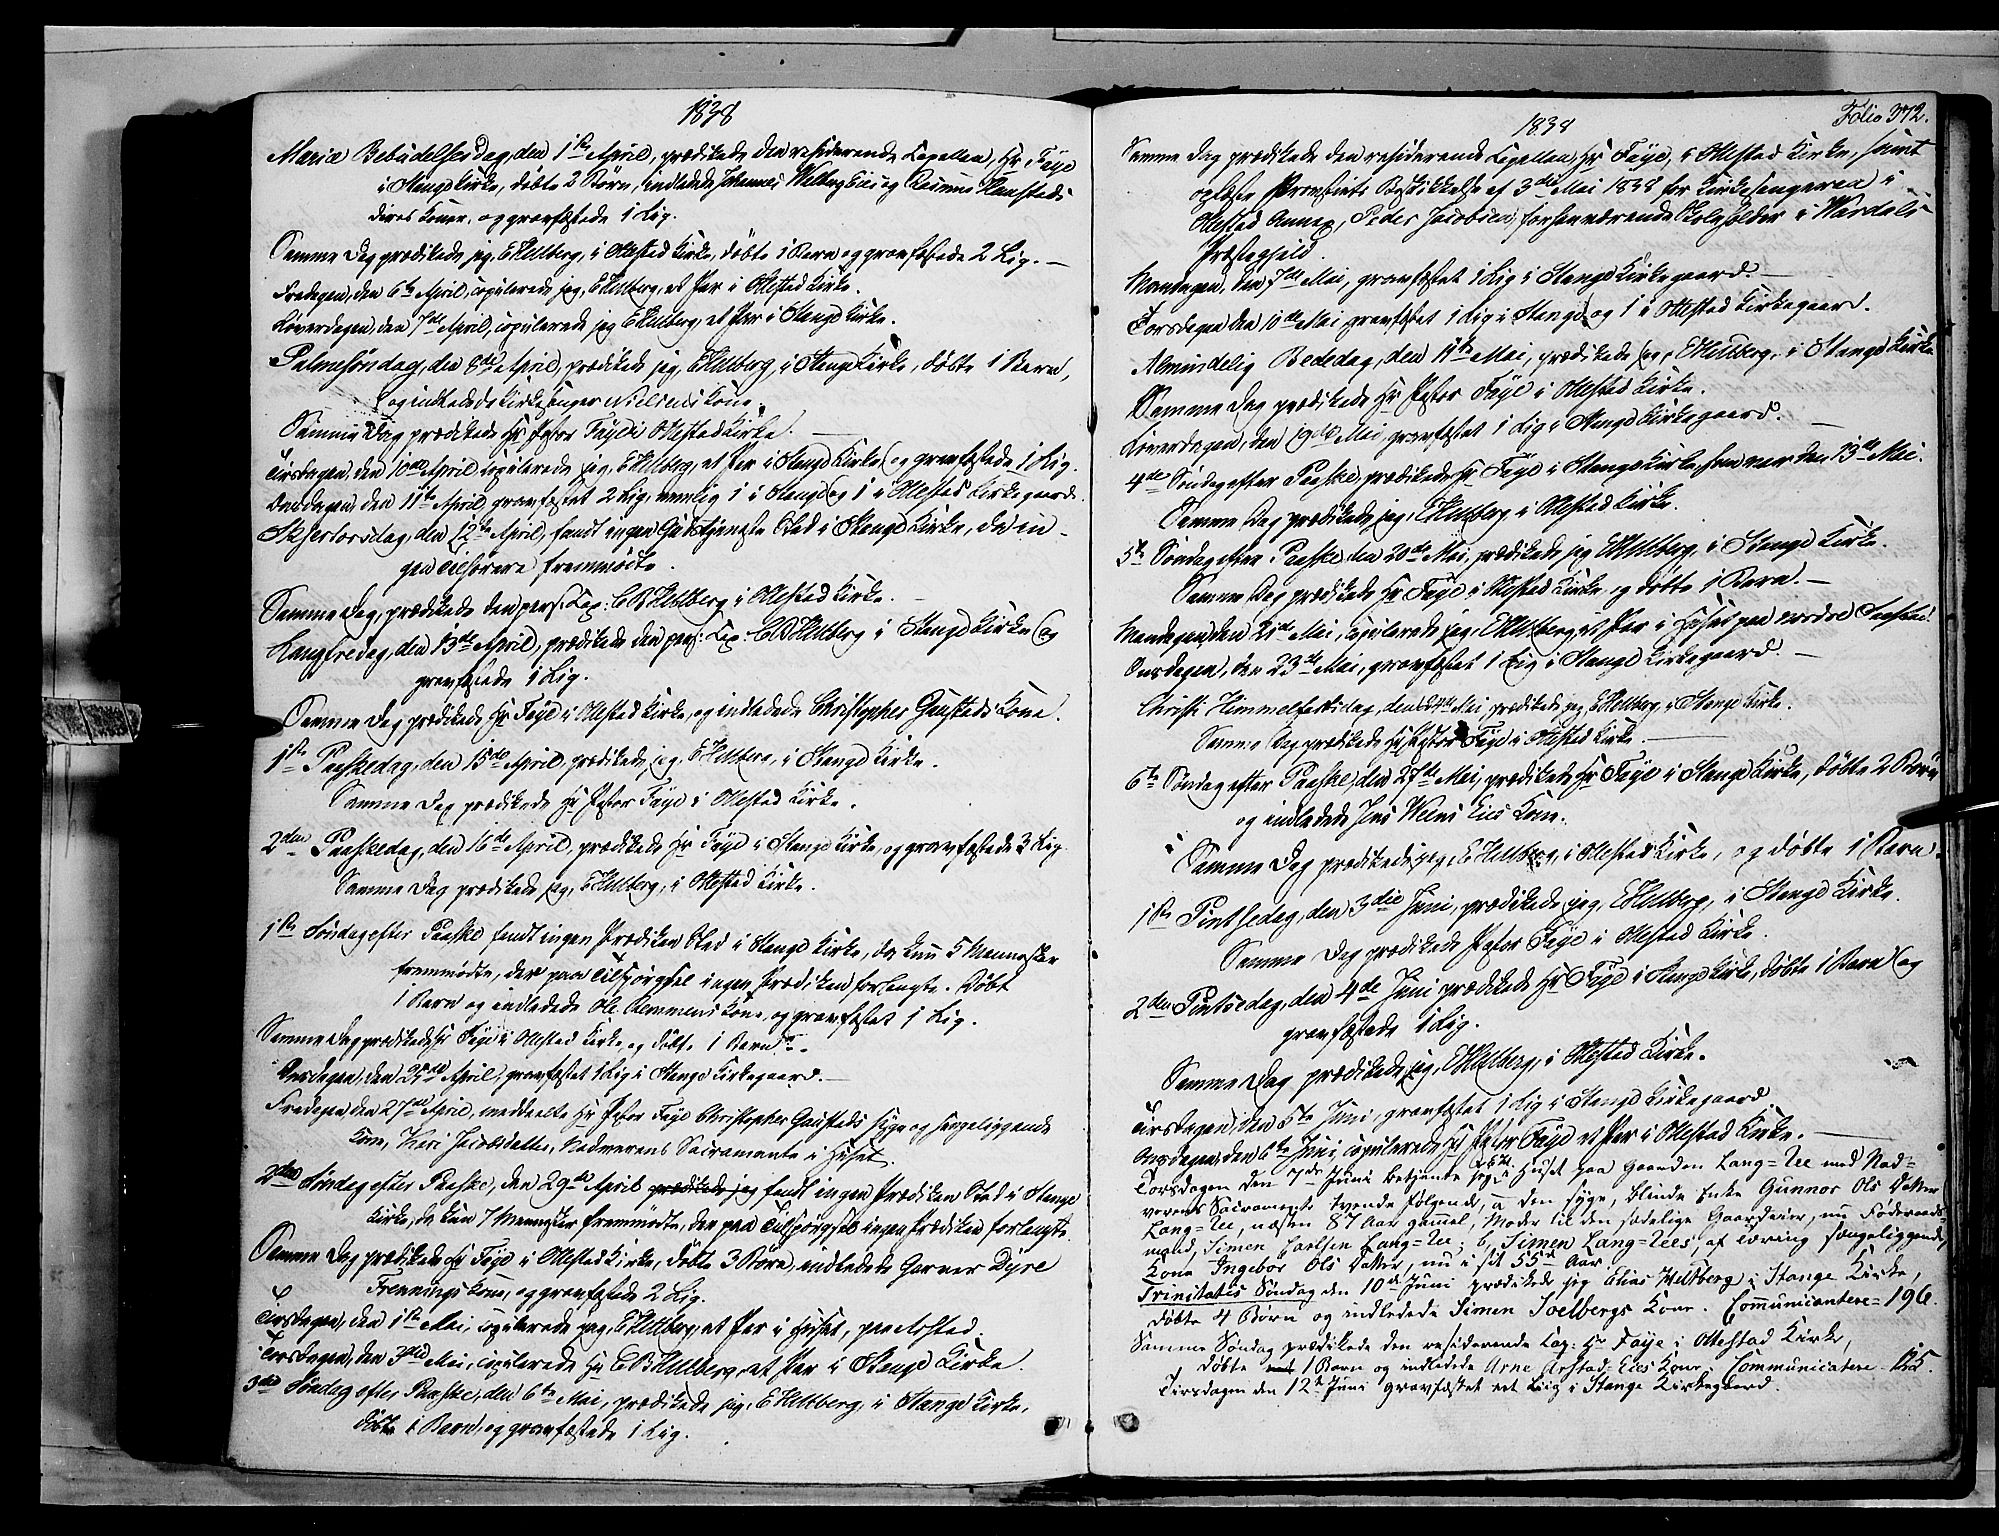 1838
Mariæ Bebudelsesdag, den 1ste April, prædikede den residerende Capellan, Hr Faye
i Stange Kirke, døbte 2 Børn, indledede Johannes og Rasmus
Koner, og gravfæstede 1 Lig.
Samme Dag prædikede jeg, EHeltberg, i Ottestad Kirke, døbte 1 Barn og gravfæstede 2 Lig. —
Fredagen, den 6te April, copulerede jeg, EHeltberg, et Par i Ottestad Kirke.
Løverdagen, den 7de April, copulerede jeg EHeltberg, et Par i Stange Kirke.
Palmesöndag, den 8de April, prædikede jeg, EHeltberg, i Stange Kirke, döbte 1 Barn,
og indledede Kirkesanger Nielsens Kone.
Samme Dag prædikede Hr Pastor Faye i Ottestad Kirke. —
Tirsdagen, den 10de April copulerede jeg, EHeltberg, et Par i Stange Kirke og gravfæstede 1 Lig.
Onsdagen, den 11te April, gravfæstet 2 Lig, nemlig 1 i Stange og 1 i Ottestad Kirkegaard.
Skjertorsdag, den 12te April, fandt ingen Gudstjeneste Sted i Stange Kirke, da in-
gen Tilhørere fremmødte.
Samme Dag, prædikede den pers: Cap: CBHeltberg i Ottestad Kirke. —
Langfredag, den 13de April, prædikede den pers: Cap: CBHeltberg i Stange Kirke og
gravfæstede 1 Lig.
Samme Dag prædikede Hr Faye i Ottestad Kirke, og indledede Christopher Gaustads Kone.
1ste Paaskedag, den 15de April, prædikede jeg, EHeltberg, i Stange Kirke.
Samme Dag prædikede Hr Pastor Faye i Ottestad Kirke.
2den Paaskedag, den 16de April, prædikede Hr Faye i Stange Kirke, og gravfæstede 3 Lig.
Samme Dag prædikede jeg, EHeltberg, i Ottestad Kirke.
1ste Søndag efter Paaske fandt ingen Prædiken Sted i Stange Kirke, da kun 5 Mennesker
fremmødte, der paa Tilspørgsel ingen Prædiken forlangte. Døbt
1 Barn og indledede Ole Klemmens Kone, og gravfæstet 1 Lig.
Samme Dag prædikede Hr Faye i Ottestad Kirke, og døbte 1 Barn. —
Onsdagen, den 25de April, gravfæstet 1 Lig i Stange Kirkegaard. —
Fredagen, den 27de April, meddeelte Hr Pastor Faye Christopher Gaustads syge og sengeliggende
Kone, Kari Jacobsdatter, Nadverens Sacramente i Huset.
2den Søndag efter Paaske, den 29de April prædikede jeg fandt ingen Prædiken Sted i Stange
Kirke, da kun 7 Mennesker fremmødte, der paa Tilspørgsel ingen Prædiken forlangte.
Samme Dag prædikede Hr Faye i Ottestad Kirke, døbte 3 Børn, indledede Garver Dyre
Frennings Kone, og gravfæstede 2 Lig.
Tirsdagen, den 1ste Mai, copulerede jeg, EHeltberg, et Par i Huset, paa Arstad.
Torsdagen, den 3die Mai, copulerede Hr CBHeltberg, et Par i Stange Kirke.
3die Söndag efter Paaske, den 6te Mai, prædikede jeg, EHeltberg, i Stange Kirke,
döbte 1 Barn, og gravfæstede 1 Lig.
1838
Folio 372.
Samme Dag prædikede den residerende Capellan, Hr Faye, i Ottestad Kirke, samt
oplæste Provstiets Beskikkelse af 3die Mai 1838 for Kirkesangeren i
Ottestad Annex, Peder Jacobsen, forhenværende Skoleholder i Wardals
Præstegjeld.
Mandagen, den 7de Mai, gravfæstet 1 Lig i Stange Kirkegaard. —
Torsdagen den 10de Mai gravfæstet 1 Lig i Stange og 1 i Ottestad Kirkegaard.
Almindelig Bededag, den 11te Mai, prædikede jeg, EHeltberg, i Stange Kirke
Samme Dag prædikede Hr Pastor Faye i Ottestad Kirke.
Løverdagen, den Mai, gravfæstet 1 Lig i Stange Kirkegaard.
4de Söndag efter Paaske, prædikede Hr Faye i Stange Kirke, som var den 13de Mai.
Samme Dag prædikede jeg, EHeltberg i Ottestad Kirke.
5te Söndag efter Paaske, den 20de Mai, prædikede jeg EHeltberg, i Stange Kirke.
Samme Dag prædikede Hr Faye i Ottestad Kirke og døbte 1 Barn. —
Mandagen den 21de Mai, copulerede jeg, EHeltberg, et Par i Huset paa nordre Saastad.
Onsdagen, den 23de Mai, gravfæstet 1 Lig i Stange Kirkegaard. —
Christi Himmelfartsdag, den 24de Mai, prædikede jeg, EHeltberg, i Stange Kirke.
Samme Dag prædikede Hr Pastor Faye i Ottestad Kirke. —
6te Søndag efter Paaske, den 27de Mai, prædikede Hr Faye i Stange Kirke, døbte 2 Børn
og indledede Jens Eies Kone.
Samme Dag prædikede jeg, EHeltberg, i Ottestad Kirke, og döbte 1 Barn.
1ste Pintsedag, den 3die Juni, prædikede jeg, EHeltberg, i Stange Kirke.
Samme Dag prædikede Pastor Faye i Ottestad Kirke.
2den Pintsedag, den 4de Juni prædikede Hr Faye i Stange Kirke, døbte 1 Barn og
gravfæstede 1 Lig.
Samme Dag prædikede jeg, EHeltberg, i Ottestad Kirke.
Tirsdagen, den 5te Juni, gravfæstet 1 Lig i Stange Kirkegaard
Onsdagen, den 6te Juni, copulerede Hr Pastor Faye et Par i Ottestad Kirke. —
Torsdagen den 7de Juni betjente jeg i Huset paa Gaarden Lang=Lee med Nad=
verens Sacramente tvende følgende, a den syge, blinde Enke Gunnor Ols Datter
Lang=Lee, næsten 87 Aar gammel, Moder til den sædelige Gaardeier, nu Föderaads=
mand, Simen Carlsen Lang=Lee; b, Simen Lang=Lees, af Tæring sengeliggende
Kone Ingebor Ols Datter, nu i sit 55de Aar.
Trinitatis Søndag den 10de Juni prædikede jeg Elias Heltberg i Stange Kirke,
döbte 4 Børn og indledede Simen Soelbergs Kone. Communicantere= 196.
Samme Söndag prædikede den residerende Cap: Hr Faye i Ottestad Kirke,
döbte 1 Barn og indledede Arne Arstad Eies Kone. Communicantere 125.
Tirsdagen den 12te Juni gravfæstet et Liig i Stange Kirkegaard.